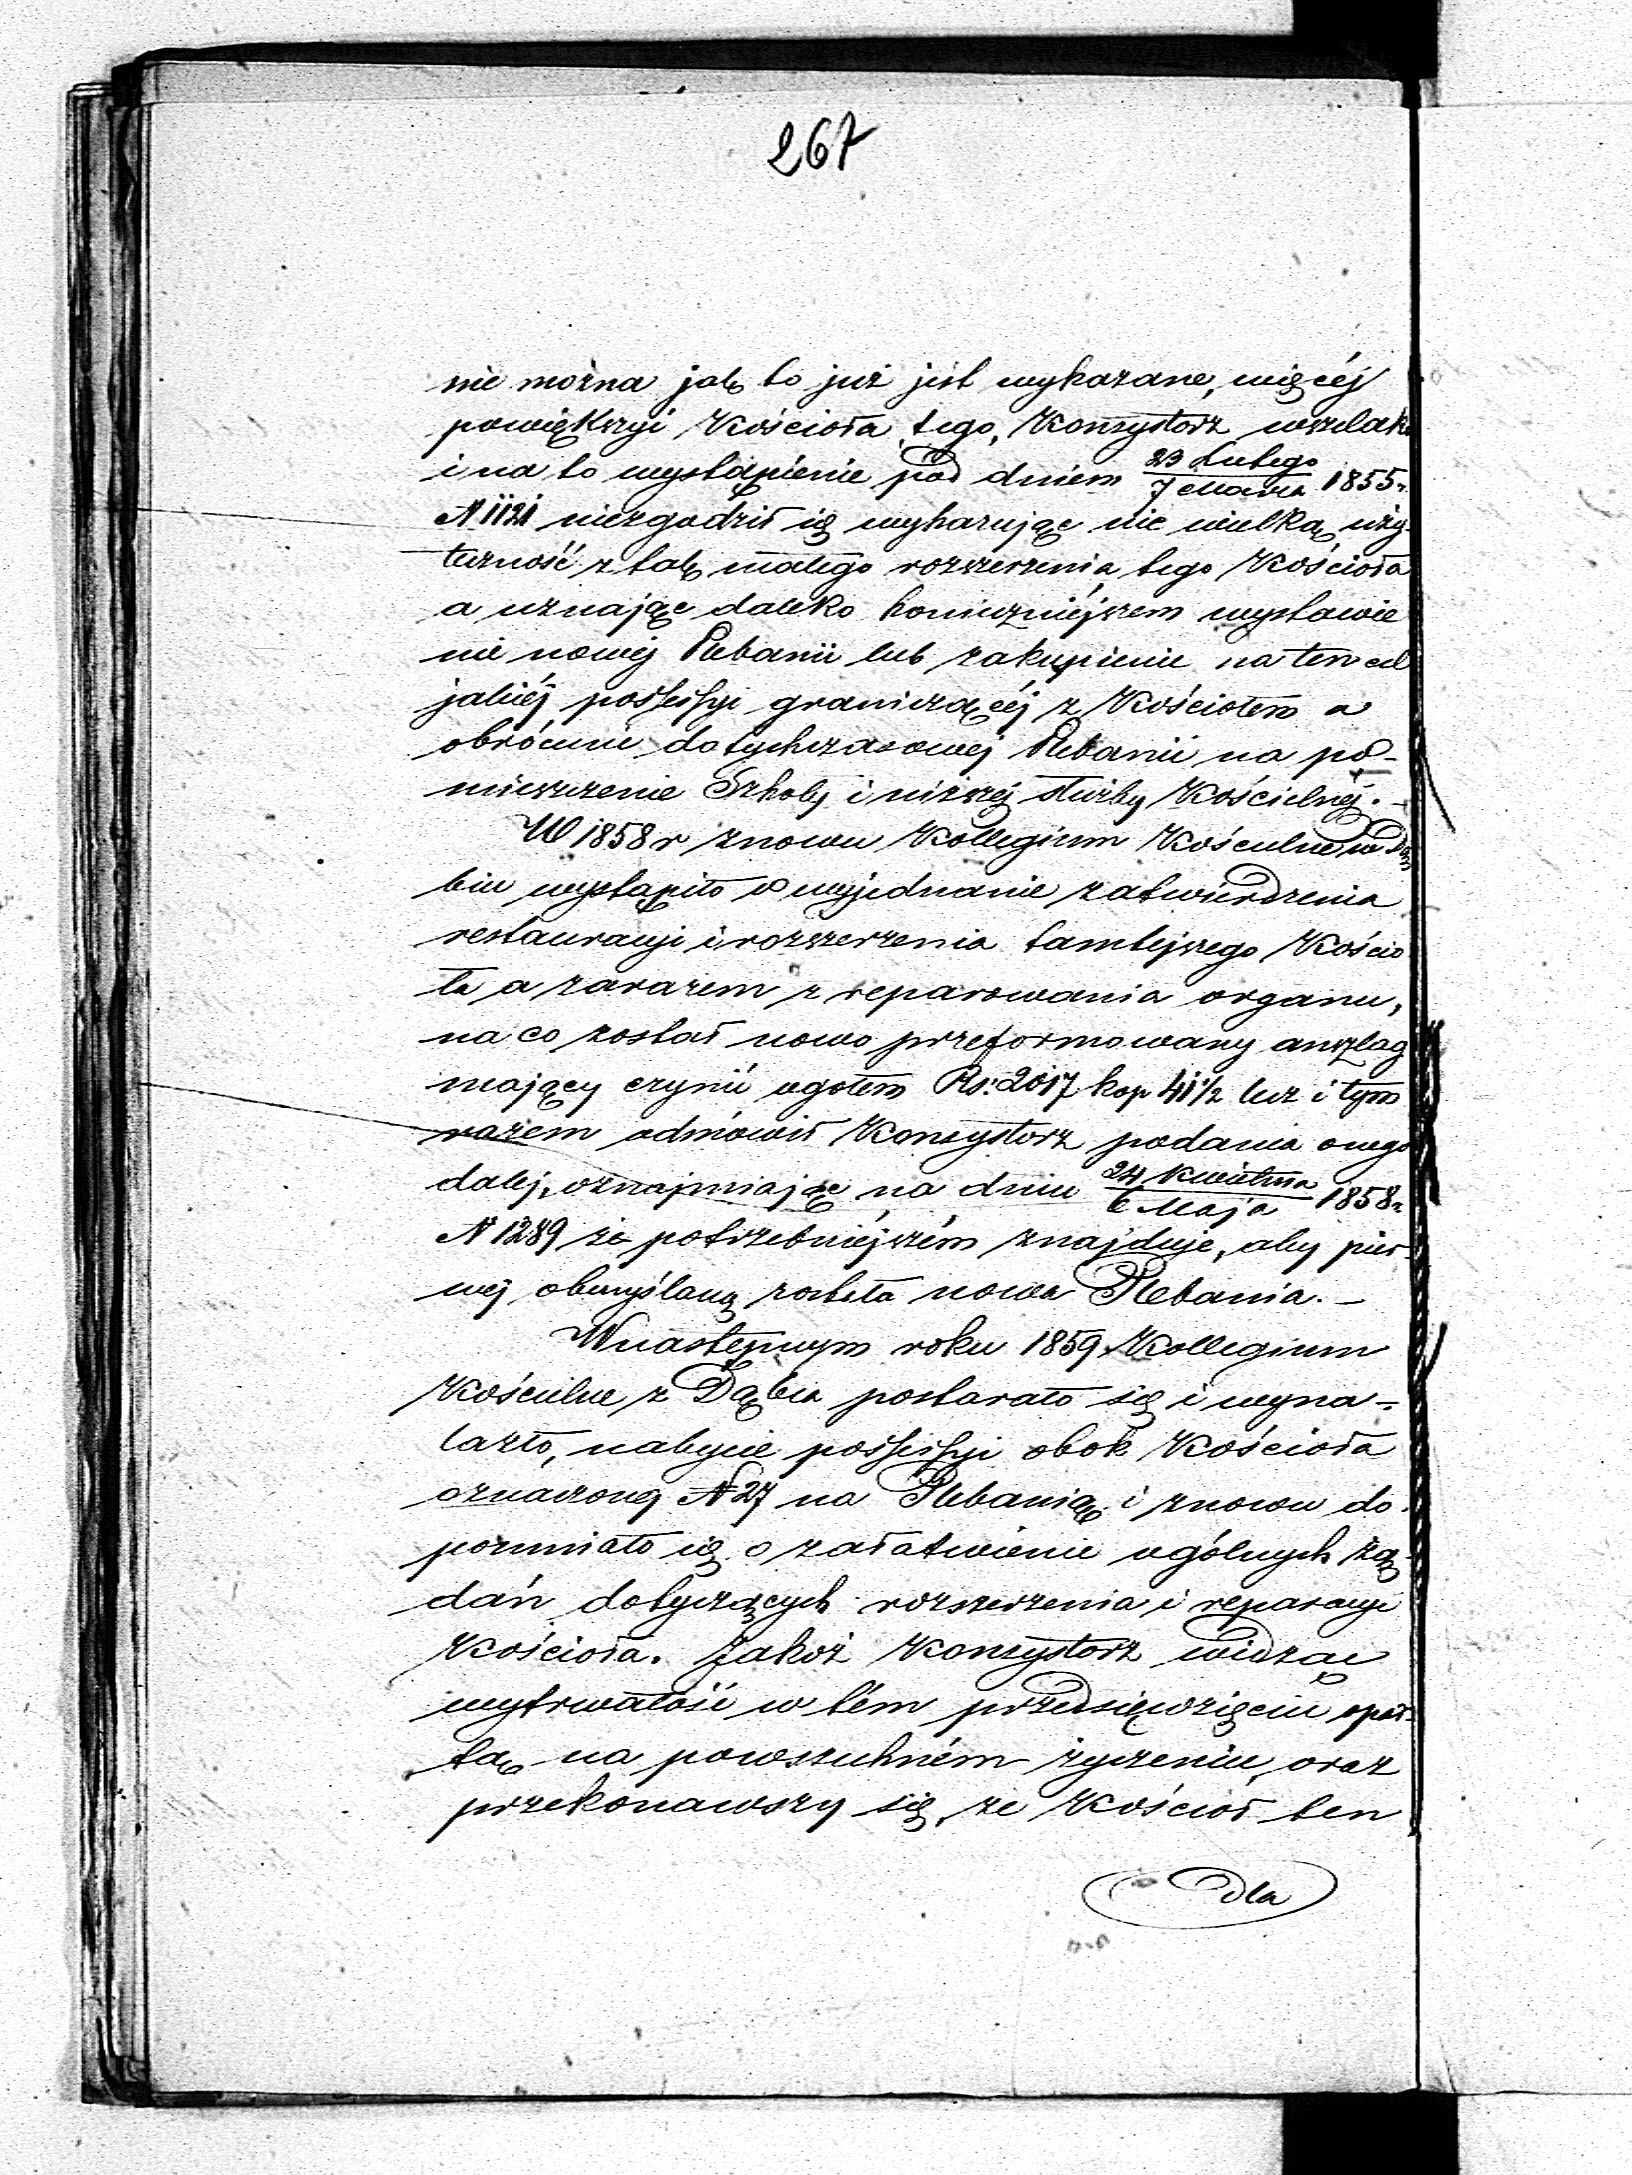 267
nie można jak to już jest wykazane, więcéj
powiększyć Kościoła tego, Konsystorz wszelako
i na to wystąpienie pod dniem 23 Lutego / 7 Marca 1855 r.
N 1121 niezgodził się wykazując nie wielką uży-
teczność z tak małego rozszerzenia tego Kościoła
a uznając daleko konieczniéjszem wystawie
nie nowéj Plebanii lub zakupienie na ten cel
jakiéj possessyi graniczącéj z Kościołem a
obrócenie dotychczasowéj Plebanii na po-
mieszczenie Szkoły i niższéj służby Kościelnéj. –
W 1858 r znowu Kollegium Kościelne w Dąm
biu wystąpiło o wyjednanie zatwierdzenia
restauracyi i rozszerzenia tamtejszego Kościo
ła a zarazem z reparowania organu,
na co został nowo przeformowany anszlag
mający czynić ogółem Rs. 2017 kop 41 1/2 lecz i tym
razem odmówił Konsystorz podania onego
daléj, oznajmiając na dniu 24 Kwietnia / 6 Maja 1858 r.
N 1289 że potrzebniéjszém znajduje, aby pier-
wéj obmyślaną została nowa Plebania. –
W następnym roku 1859 Kollegium
Kościelne z Dąbia postarało się i wyna-
lazło, nabycie possessyi obok Kościoła
oznaczonéj N 27 na Plebanią i znowu do
pomniało się o załatwienie ogólnych żą-
dań dotyczących rozszerzenia i reparacyi
Kościoła. Jakoż Konsystorz widząc
wytrwałość w tém przedsięwzięciu opar-
tą na powszechném życzeniu, oraz
przekonawszy się, że Kościoł ten
dla